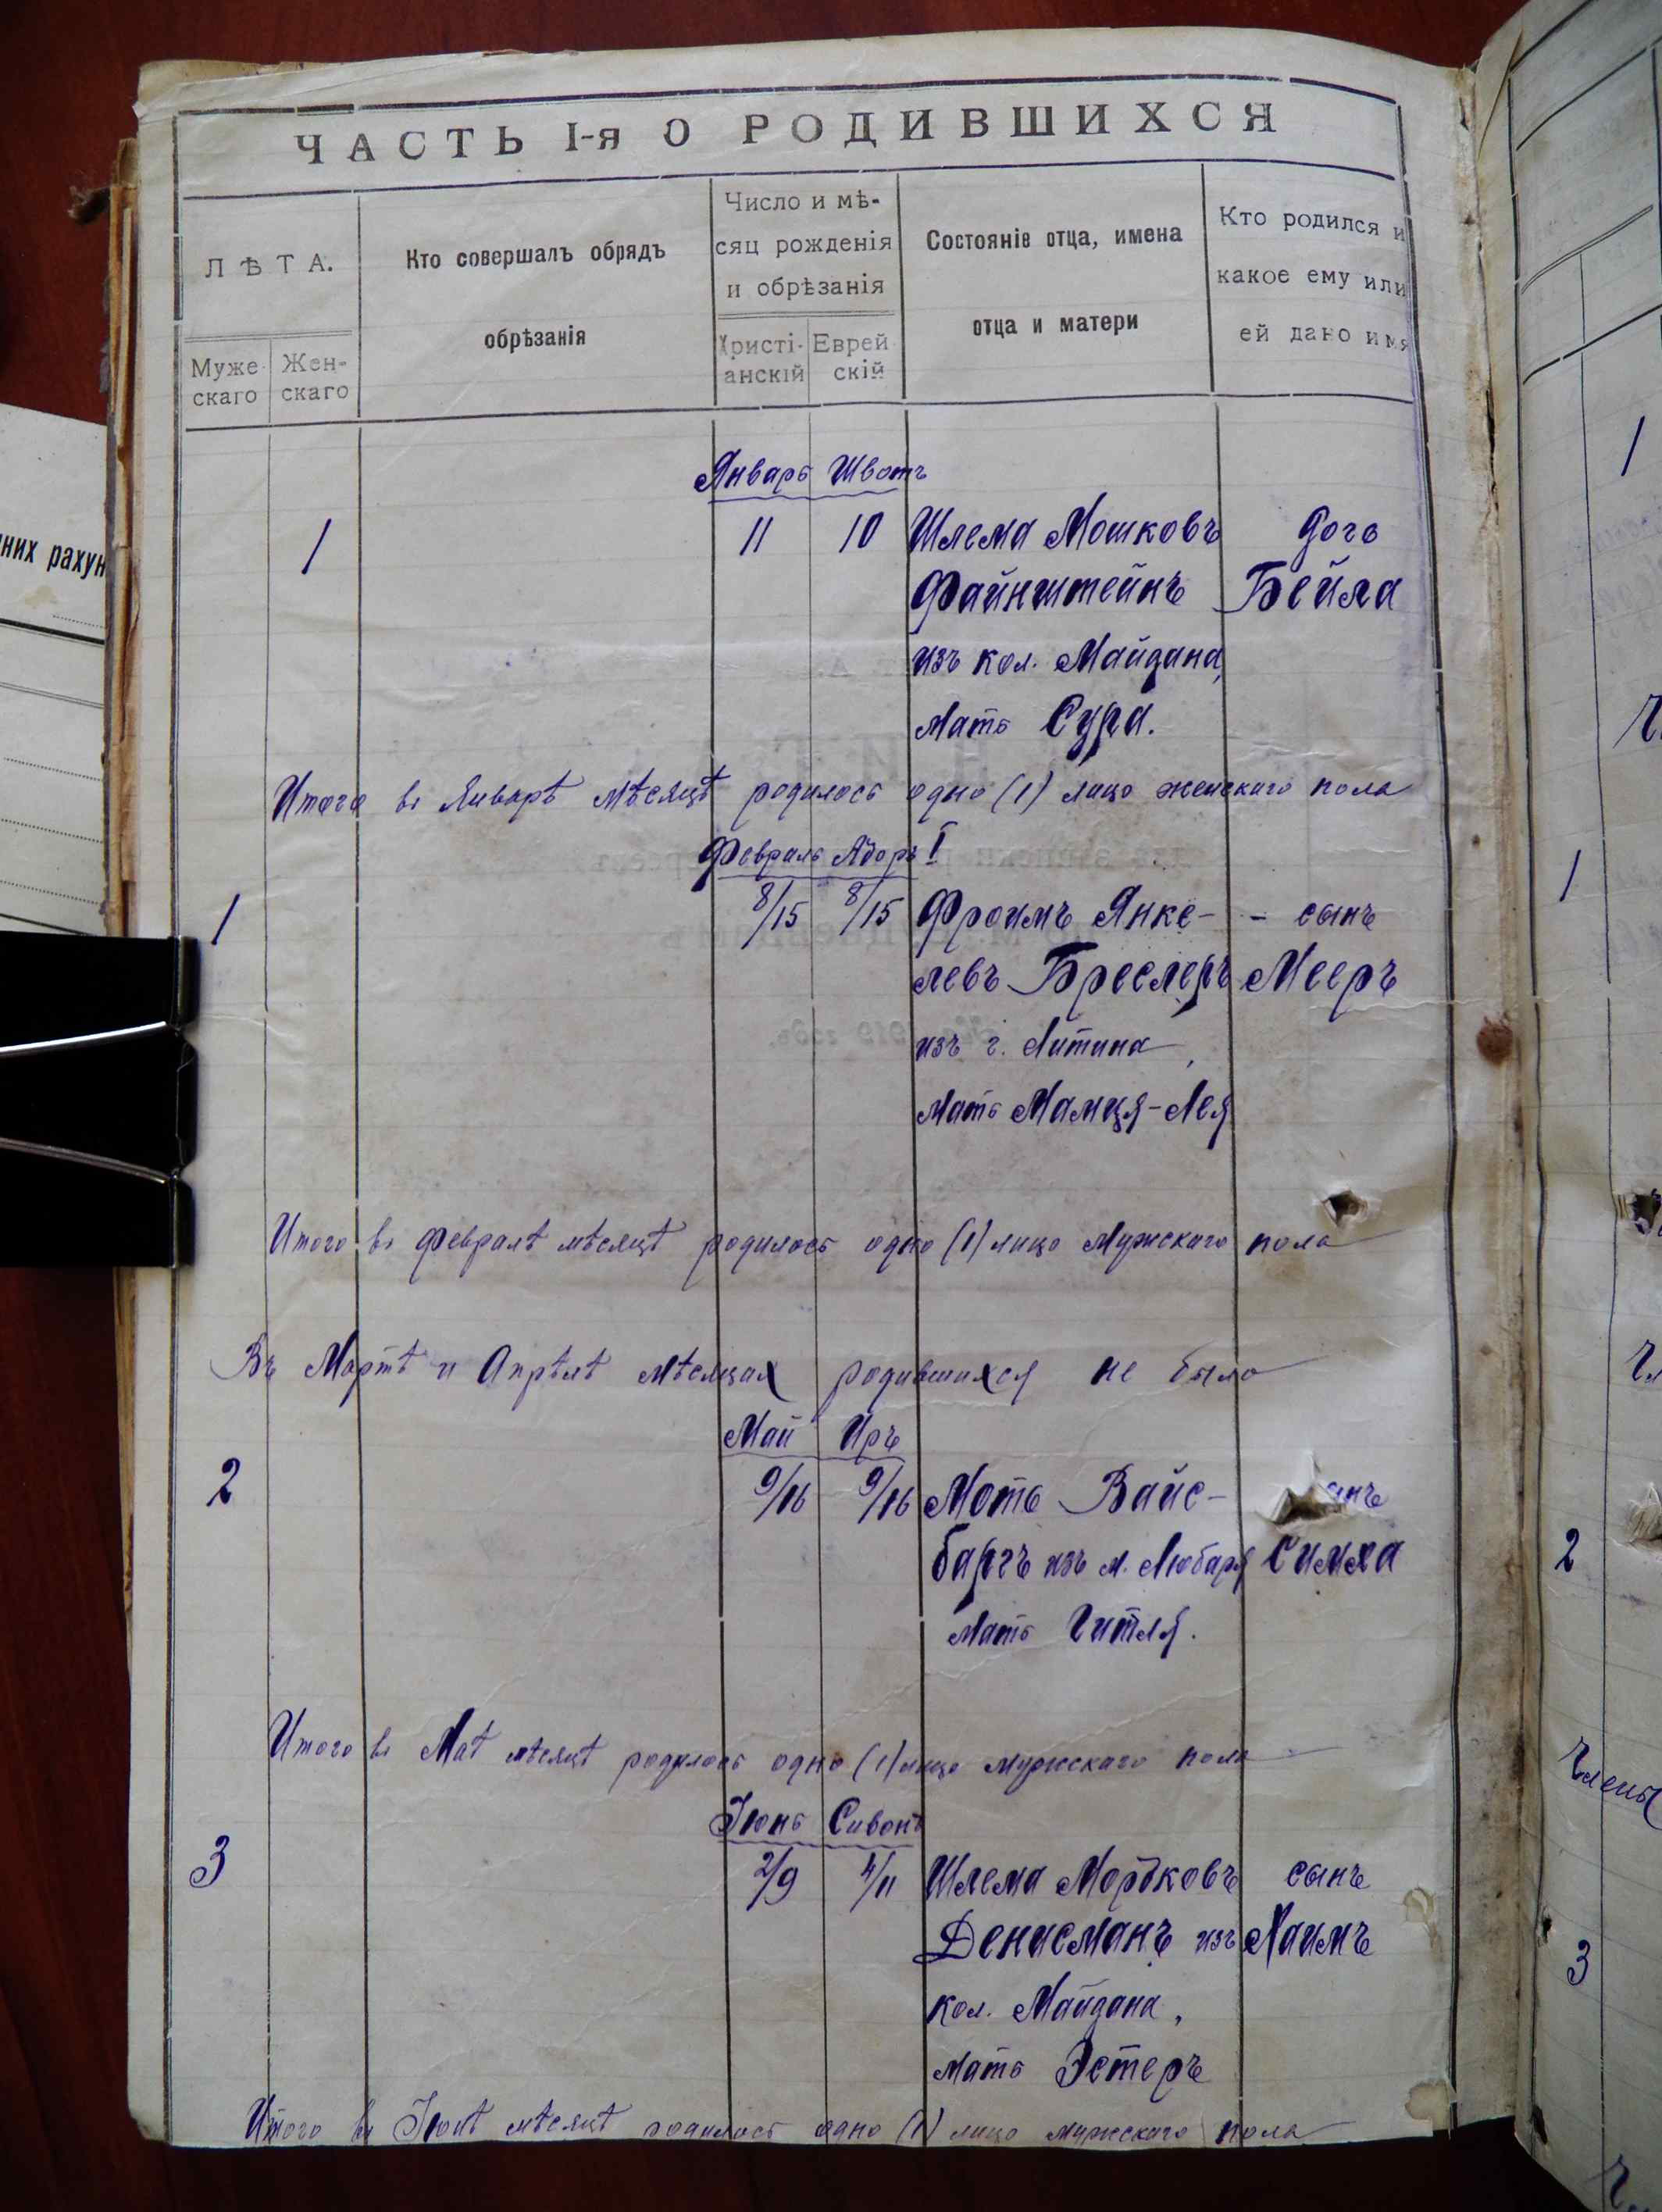 ЧАСТЬ I-я О РОДИВШИХСЯ
ЛѢТА.
Муже-
скаго
Жен-
скаго
Кто совершалъ обрядъ
обрѣзанія
Число и мѣ-
сяц рожденія
и обрѣзанія
Христі-
анскій
Еврей
скій
Состояніе отца, имена
отца и матери
Кто родился и
какое ему или
ей дано имя
них рахун
Январь Швотъ
1 11 10 Шлема Мошковъ дочь
Файнштейнъ Бейла
изъ кол. Майдана,
мать Сура.
Итого въ Январѣ мѣсяцѣ родилось одно (1) лицо женскаго пола
Февраль Адоръ I
1 8/15 8/15 Фроимъ Янке- - сынъ
левъ Бреслеръ Мееръ
изъ г. Литина,
мать Маиця-Лея
Итого въ Февралѣ мѣсяцѣ родилось одно (1) лицо мужскаго пола
Въ Мартѣ и Апрѣлѣ мѣсяцах родившихся не было
Май Иръ
2 9/16 9/16 Моть Вайс- ынъ
баргъ изъ м. Любаря Симха
мать Гитля.
Итого въ Маѣ мѣсяцѣ родилось одно (1) лицо мужскаго пола
Іюнь Сивонъ
3 2/9 4/11 Шлема Мордковъ сынъ
Денисманъ изъ Хаимъ
кол. Майдана,
мать Эстеръ
Итого въ Іюнѣ мѣсяцѣ родилось одно (1) лицо мужскаго пола
1
1
2
3